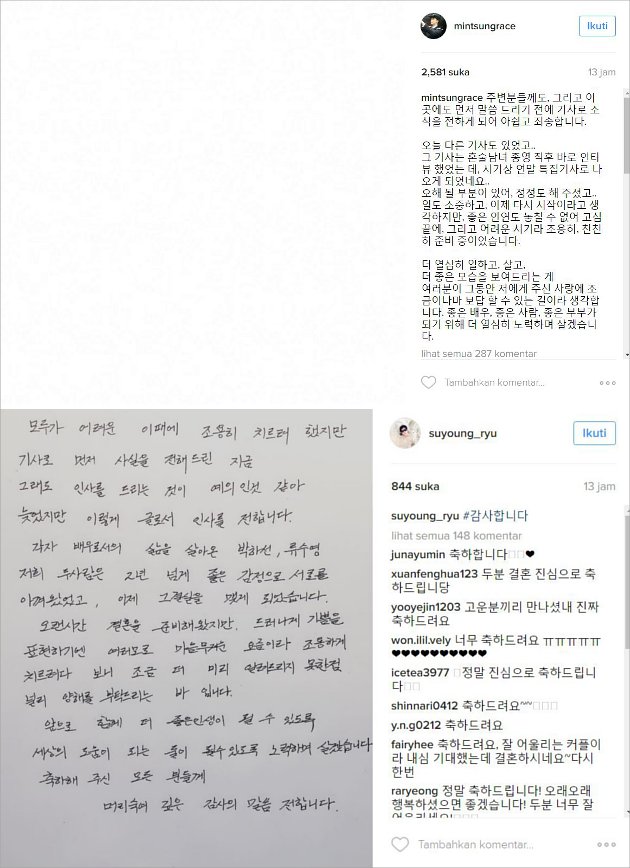 mintsungrace
Ikuti
2,581 suka
13 jam
mintsungrace 주변분들께도, 그리고 이
곳에도 먼저 말씀 드리기 전에 기사로 소
식을 전하게 되어 아쉽고 죄송합니다.
오늘 다른 기사도 있었고..
그 기사는 혼술남녀 종영 직후 바로 인터
뷰 했었는 데, 시기상 연말 특집기사로 나
오게 되었네요..
오해 될 부분이 있어, 정정도 해 주셨고..
일도 소중하고, 이제 다시 시작이라고 생
각하지만, 좋은 인연도 놓칠 수 없어 고심
끝에, 그리고 어려운 시기라 조용히, 천천
히 준비 중이었습니다.
더 열심히 일하고, 살고,
더 좋은 모습을 보여드리는 게
여러분이 그동안 저에게 주신 사랑에 조
금이나마 보답 할 수 있는 길이라 생각합
니다. 좋은 배우, 좋은 사람, 좋은 부부가
되기 위해 더 열심히 노력하며 살겠습니
다.
lihat semua 287 komentar
Tambahkan komentar...
모두가 어려운 이때에 조용히 치르려 했지만
기사로 먼저 사실을 전해드린 지금
그래도 인사를 드리는 것이 예의인것 같아
늦었지만 이렇게 글로서 인사를 전합니다.
각자 배우로서의 삶을 살아온 박하선, 류수영
저희 두사람은 2년 넘게 좋은 감정으로 서로를
아껴왔었고, 이제 그결실을 맺게 되었습니다.
오랜시간 결혼을 준비해왔지만, 드러나게 기쁨을
표현하기엔 여러모로 마음무거운 요즘이라 조용하게
치르려다 보니 조금 더 미리 알려드리지 못한점
널리 양해를 부탁드리는 바 입니다.
앞으로 함께 더 좋은인생이 될 수 있도록
세상의 도움이 되는 둘이 될수있도록 노력하며 살겠습니다
축하해 주신 모든 분들께
머리숙여 깊은 감사의 말씀 전합니다.
suyoung_ryu
Ikuti
844 suka
13 jam
suyoung_ryu #감사합니다
lihat semua 148 komentar
junayumin 축하합니다❤
xuanfenghua123 두분 결혼 진심으로 축
하드립니당
yooyejin1203 고운분끼리 만나셨내 진짜
축하드려요
won.ilil.vely 너무 축하드려요 ㅠㅠㅠㅠㅠ
❤❤❤❤❤❤❤❤❤❤
icetea3977 정말 진심으로 축하드립니
다
shinnari0412 축하드려요~~
y.n.g0212 축하드려요
fairyhee 축하드려요, 잘 어울리는 커플이
라 내심 기대했는데 결혼하시네요~다시
한번
raryeong 정말 축하드립니다! 오래오래
행복하셨으면 좋겠습니다! 두분 너무 잘
Tambahkan komentar...